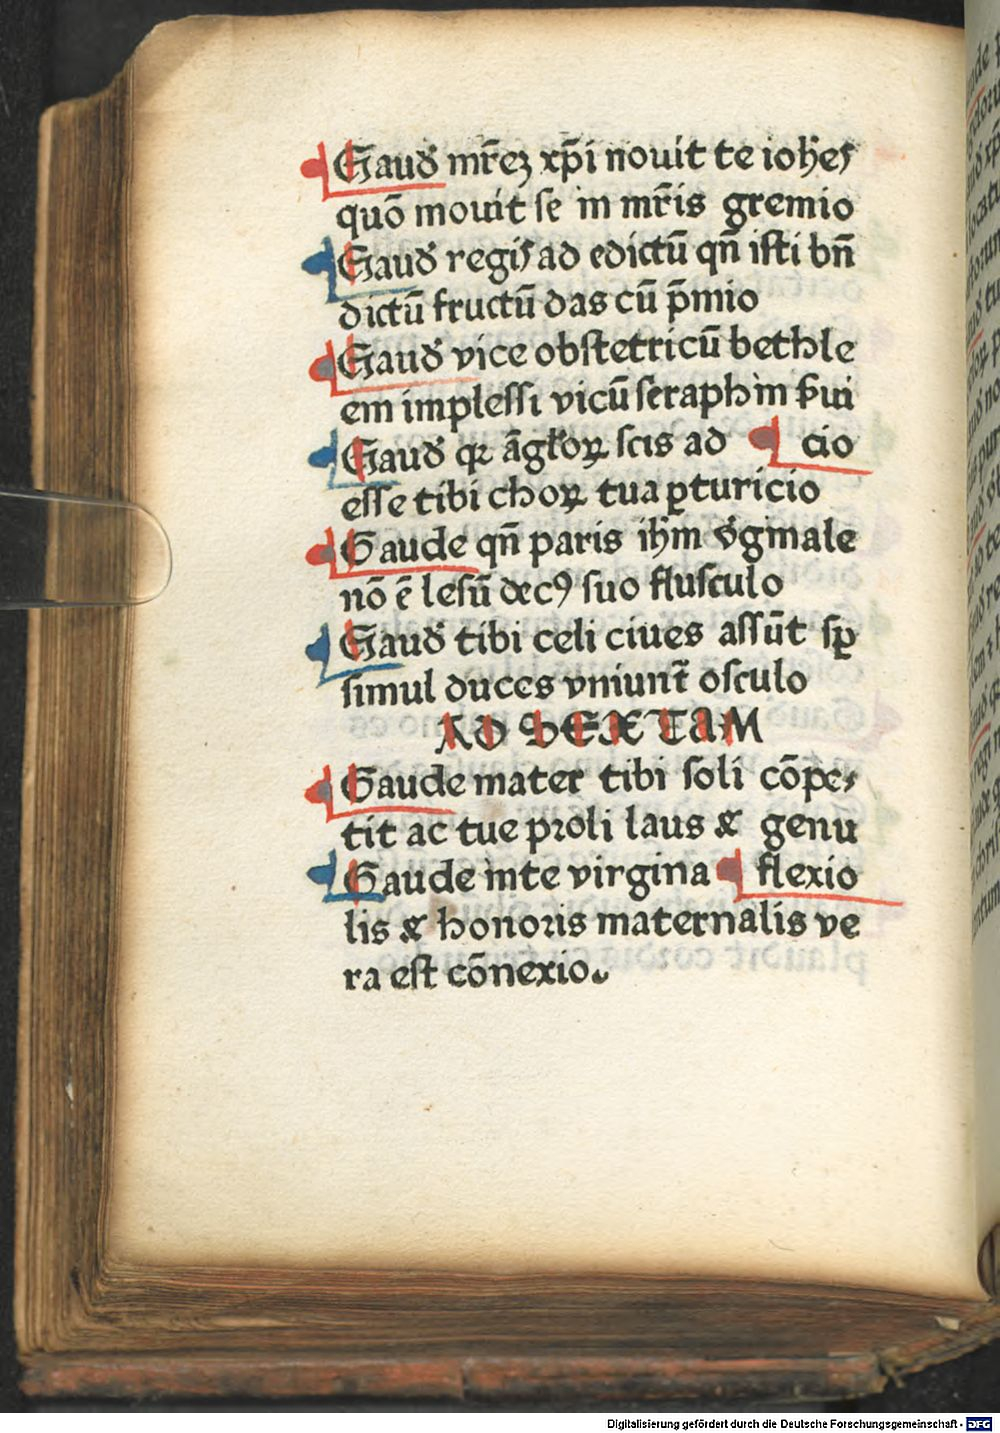 Gaud mr̄eꝫ xp̄i nouit te ioħes
quō mouit se in mr̄is gremio
Gaud regis ad edictū qn̄ isti bn̄
dictū fructū das cū p̄mio
Gaud vice obstetricū bethle
em implessi vicū seraphim
Gaud qꝛ āgłoꝝ scis ad cio
esse tibi choꝝ tua ꝑturicio
Gaude qn̄ paris ihm vg̓inale
nō ē lesū decꝰ suo flusculo
Gaud tibi celi ciues assūt sꝑ
simul duces vniunt̄ osculo
AD SEXTAM
Gaude mater tibi soli cōpe
tit ac tue proli laus & genu
Gaude inte virgina flexio
lis & honoris maternalis ve
ra est cōnexio
Digitalisierung gefördert durch die Deutsche Forschungsgemeinschaft - DFG